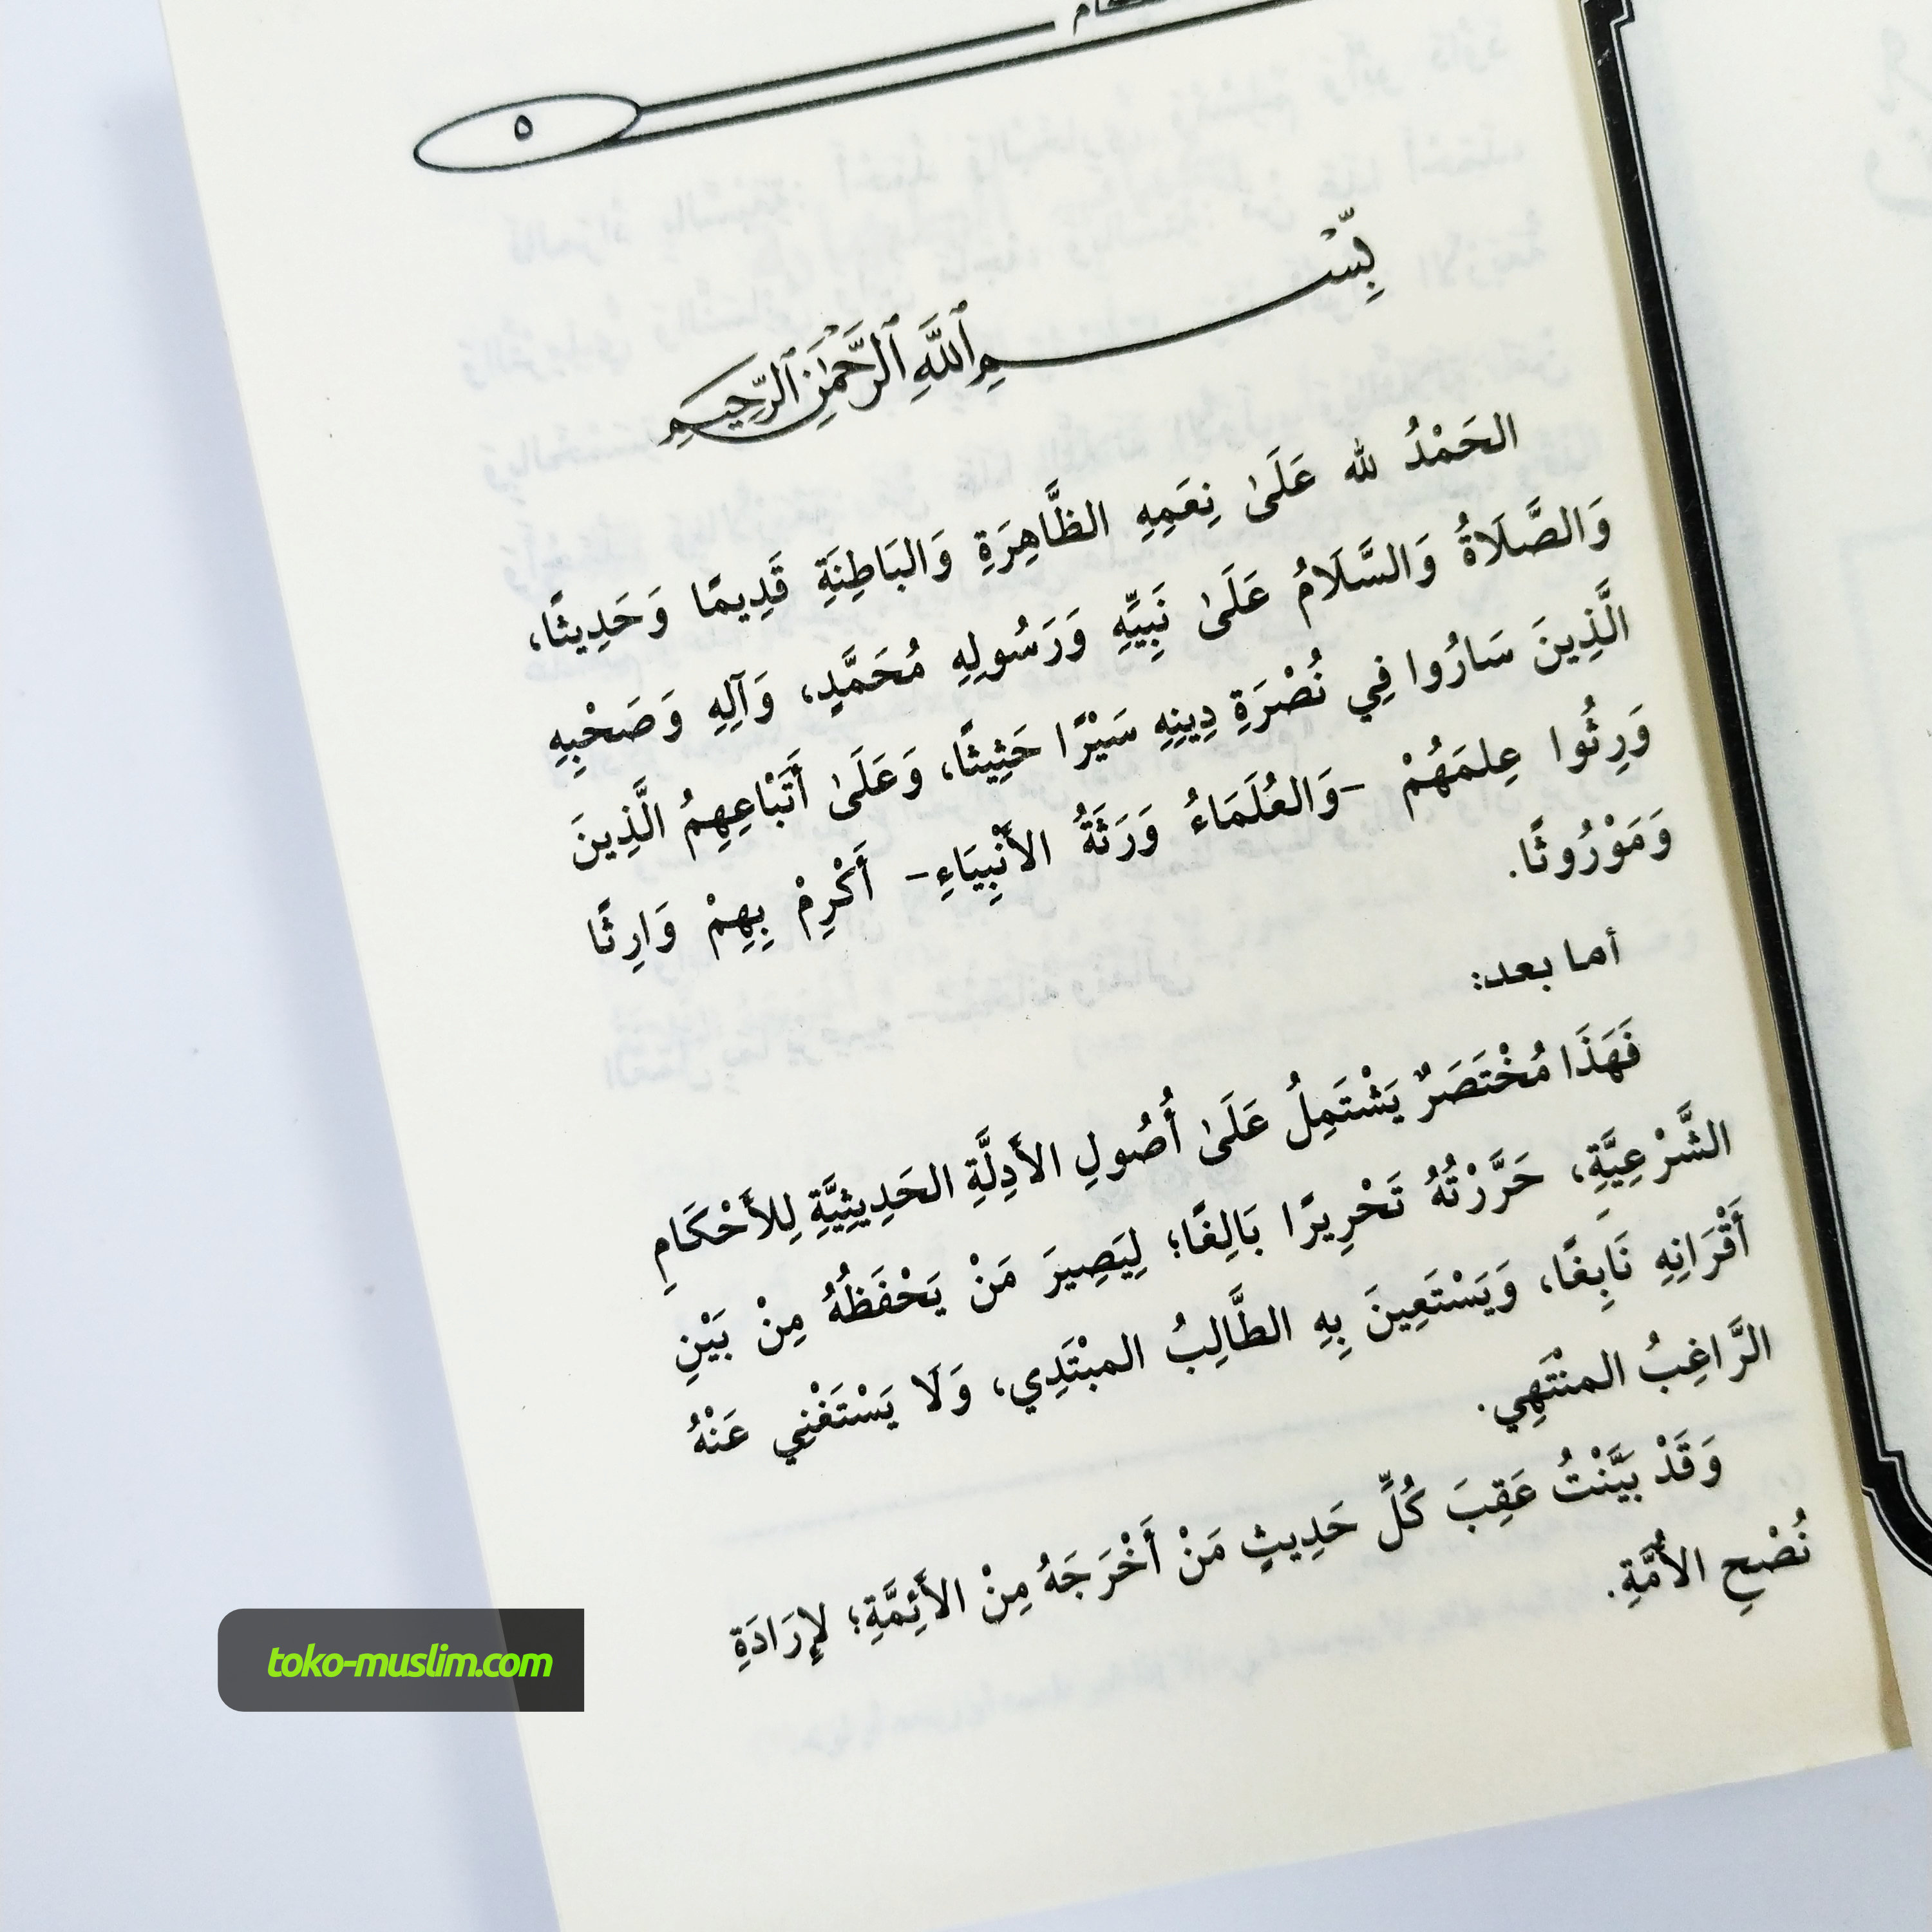 ٥
بِسْمِ ٱللَّهِ ٱلرَّحْمَٰنِ ٱلرَّحِيمِ
الحَمْدُ لله عَلَىٰ نِعَمِهِ الظَّاهِرَةِ وَالبَاطِنَةِ قَدِيمًا وَحَدِيثًا،
وَالصَّلَاةُ وَالسَّلَامُ عَلَىٰ نَبِيِّهِ وَرَسُولِهِ مُحَمَّدٍ، وَآلِهِ وَصَحْبِهِ
الَّذِينَ سَارُوا فِي نُصْرَةِ دِينِهِ سَيْرًا حَثِيثًا، وَعَلَىٰ أَتْبَاعِهِمُ الَّذِينَ
وَرِثُوا عِلمَهُمْ -وَالعُلَمَاءُ وَرَثَةُ الأَنْبِيَاءِ- أَكْرِمْ بِهِمْ وَارِثًا
وَمَوْرُوثًا.
أما بعد:
فَهَذَا مُخْتَصَرٌ يَشْتَمِلُ عَلَىٰ أُصُولِ الأَدِلَّةِ الحَدِيثِيَّةِ لِلأَحْكَامِ
الشَّرْعِيَّةِ، حَرَّرْتُهُ تَحْرِيرًا بَالِغًا؛ لِيَصِيرَ مَنْ يَحْفَظُهُ مِنْ بَيْنِ
أَقْرَانِهِ نَابِغًا، وَيَسْتَعِينَ بِهِ الطَّالِبُ المبْتَدِي، وَلَا يَسْتَغْنِي عَنْهُ
الرَّاغِبُ المنْتَهِي.
وَقَدْ بَيَّنْتُ عَقِبَ كُلِّ حَدِيثٍ مَنْ أَخْرَجَهُ مِنْ الأَئِمَّةِ؛ لإِرَادَةِ
نُصْحِ الأُمَّةِ.
toko-muslim.com